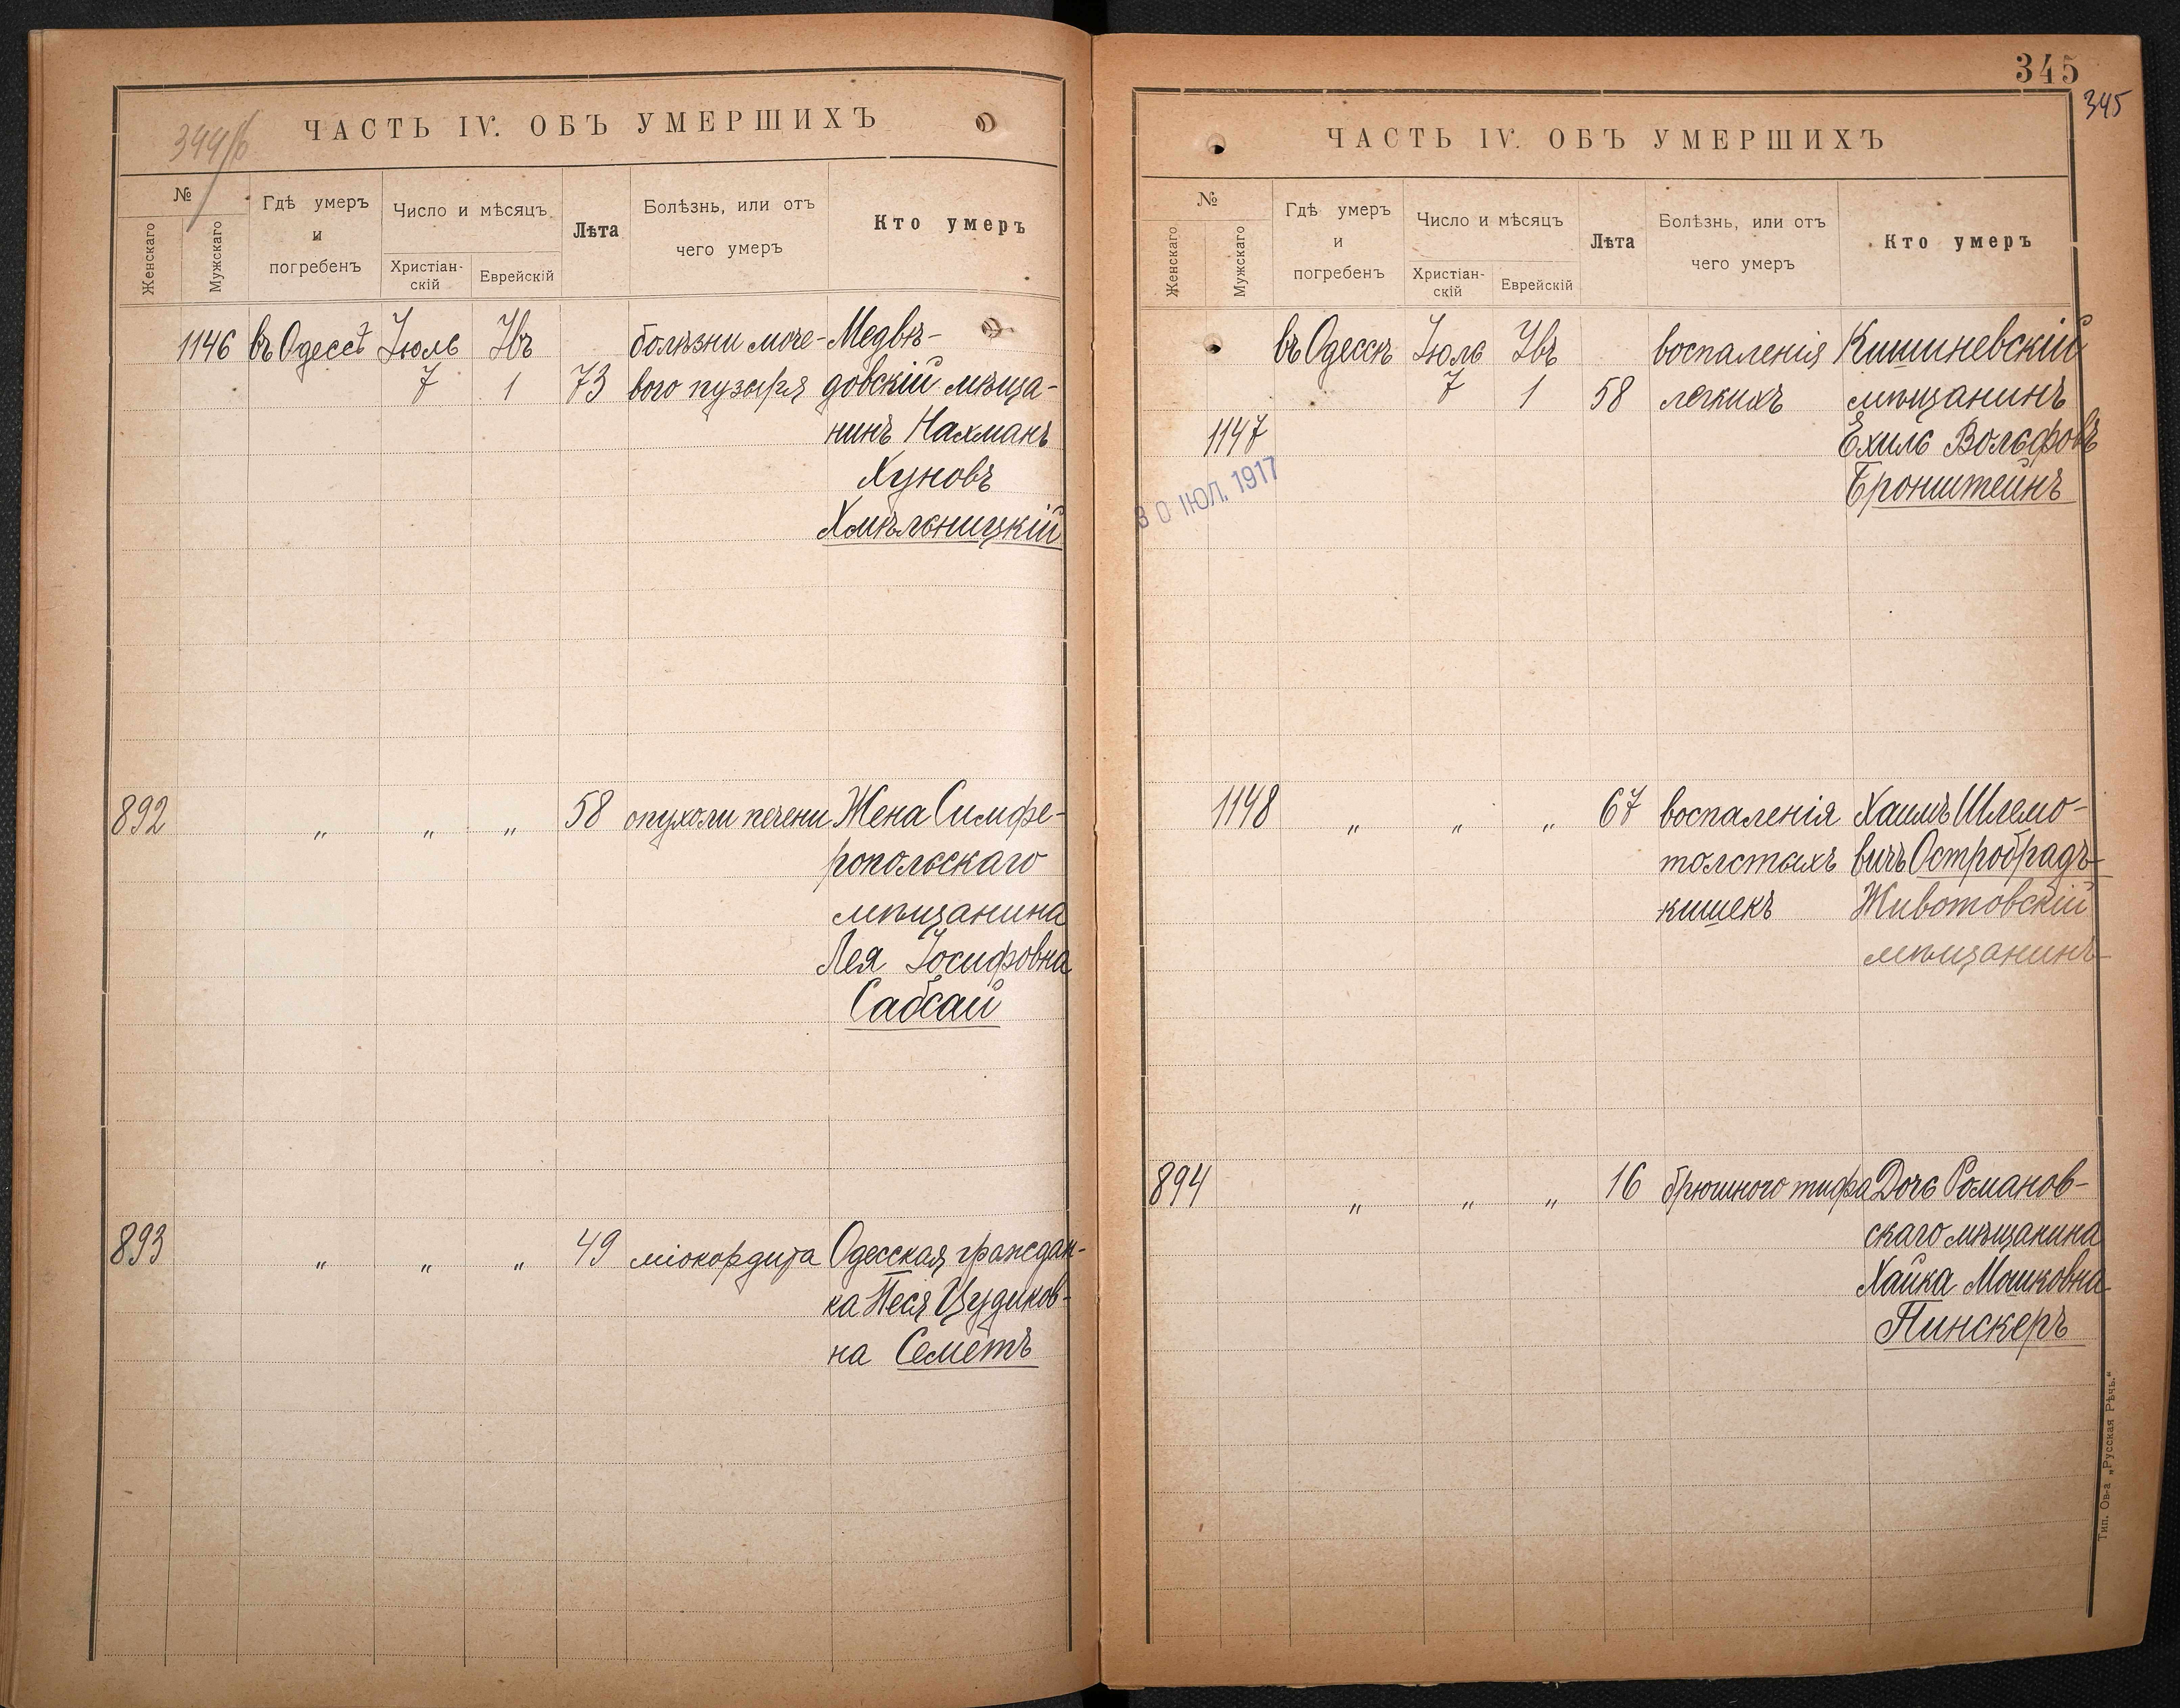 344/б
ЧАСТЬ IV. ОБЪ УМЕРШИХЪ
№
Женскаго
Мужскаго
Гдѣ умеръ
и
погребенъ
Число и мѣсяцъ
Христіан-
скій
Еврейскій
Лѣта
Болѣзнь, или отъ
чего умеръ
Кто умеръ
1146 въ Одессѣ Іюль Ѳвъ болѣзни моче- Медвѣ-
7 1 73 вого пузыря довскій мѣща-
нинъ Нахманъ
Хуновъ
Хмѣльницкій
892 „ „ „ 58 опухоли печени Жена Симфе-
ропольскаго
мѣщанина
Лея Іосифовна
Сабсай
893 „ „ „ 49 міокардита Одесская граждан-
ка Песя Цудиков-
на Семетъ
345
345
ЧАСТЬ IV. ОБЪ УМЕРШИХЪ
№
Женскаго
Мужскаго
Гдѣ умеръ
и
погребенъ
Число и мѣсяцъ
Христіан-
скій
Еврейскій
Лѣта
Болѣзнь, или отъ
чего умеръ
Кто умеръ
въ Одессѣ Іюль Ѳвъ воспаленія Кишиневскій
7 1 58 легкихъ мѣщанинъ
1147 Ехиль Вольфовъ
Бронштейнъ
30 ІЮЛ. 1917
1148 „ „ „ 67 воспаленія Хаимъ Шлемо-
толстыхъ вичъ Остробрадъ
кишекъ Животовскій
мѣщанинъ
894 „ „ „ 16 брюшного тифа Дочь Романов-
скаго мѣщанина
Хайка Мошковна
Пинскеръ
Тип. Ов-а „Русская Рѣчь."